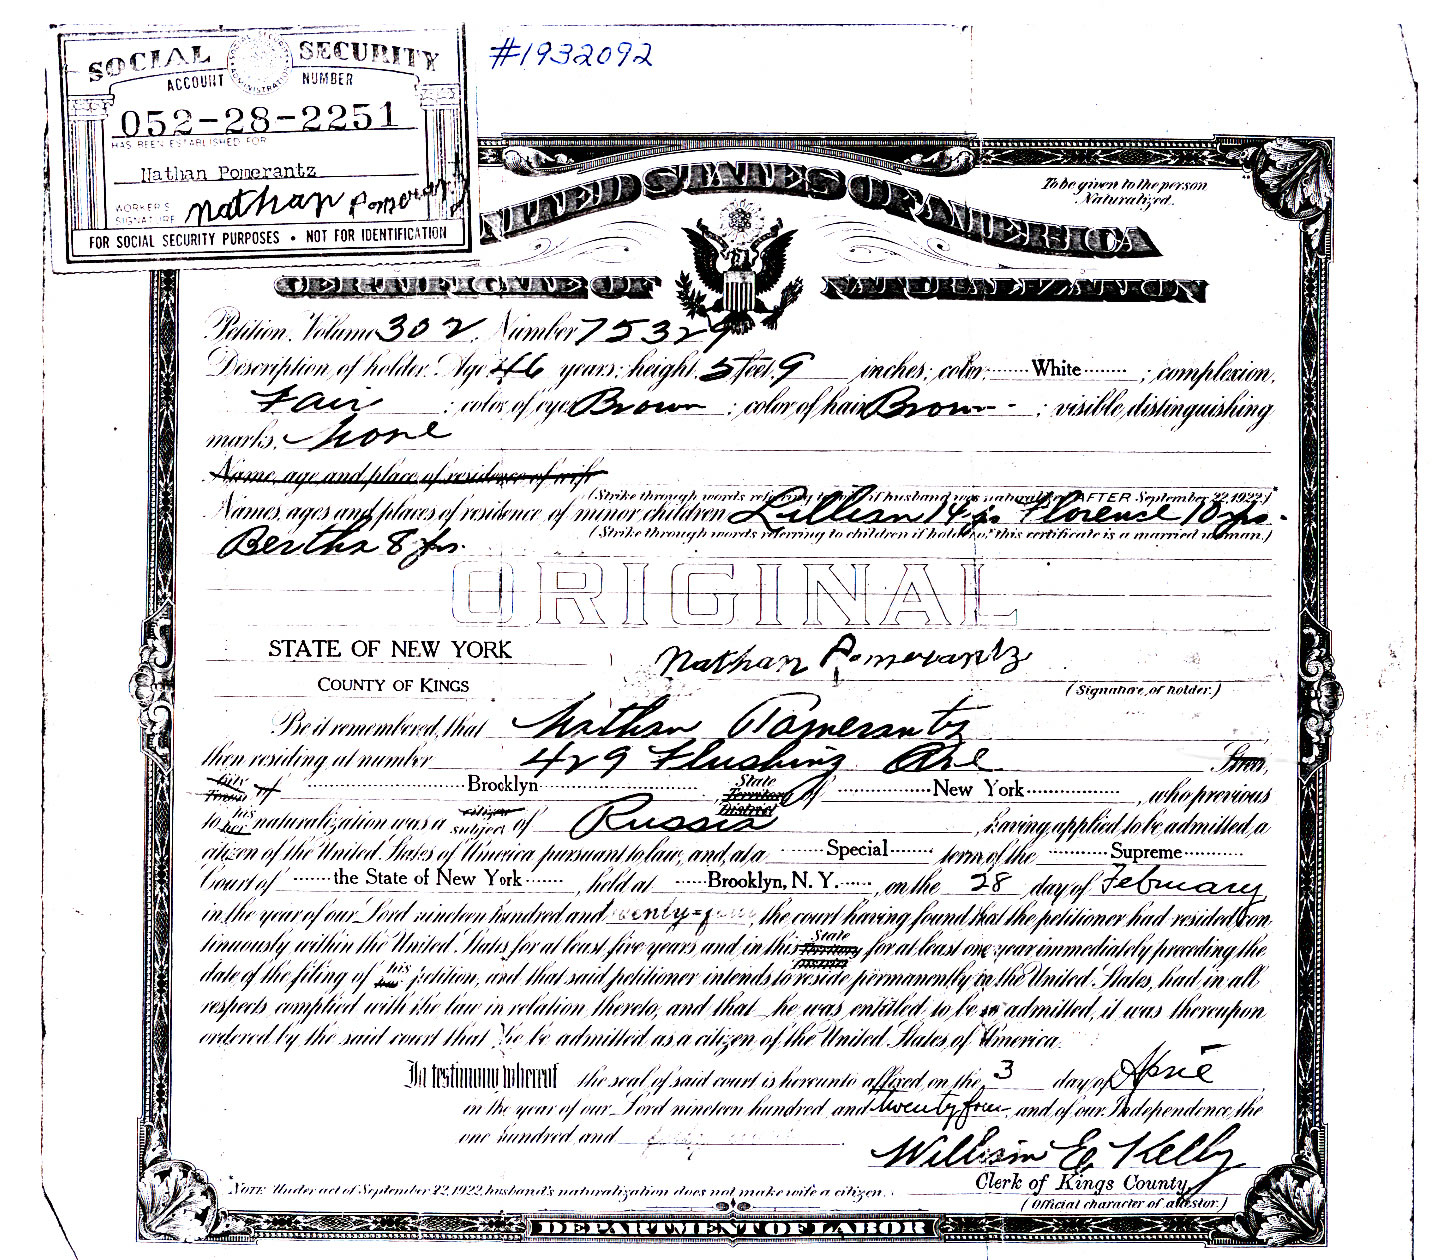 SOCIAL SECURITY
ACCOUNT NUMBER
052-28-2251
HAS BEEN ESTABLISHED FOR
Nathan Pomerantz
WORKER'S SIGNATURE Nathan Pomerantz
FOR SOCIAL SECURITY PURPOSES • NOT FOR IDENTIFICATION
#1932092
To be given to the person
Naturalized.
UNITED STATES OF AMERICA
CERTIFICATE OF NATURALIZATION
Petition, Volume 302, Number 75329
Description of holder. Age, 46 years; height, 5 feet, 9 inches; color, White; complexion,
Fair; color of eyes Brown; color of hair Brown; visible distinguishing
marks, None
Name, age and place of residence of wife
(Strike through words referring to wife if husband was naturalized AFTER September 22, 1922.)
Names, ages and places of residence of minor children Lillian 14 yrs Florence 10 yrs.
(Strike through words referring to children if holder of this certificate is a married woman.)
Bertha 8 yrs.
ORIGINAL
STATE OF NEW YORK
Nathan Pomerantz
COUNTY OF KINGS
(Signature of holder.)
Be it remembered, that Nathan Pomerantz
then residing at number 429 Flushing Ave Street,
City Town of Brooklyn, State Territory District of New York, who previous
to his her naturalization was a citizen subject of Russia, having applied to be admitted a
citizen of the United States of America pursuant to law, and, at a Special term of the Supreme
Court of the State of New York, held at Brooklyn, N. Y., on the 28 day of February
in the year of our Lord nineteen hundred and twenty-four, the court having found that the petitioner had resided con-
tinuously within the United States for at least five years and in this State Territory for at least one year immediately preceding the
date of the filing of his her petition, and that said petitioner intends to reside permanently in the United States, had in all
respects complied with the law in relation thereto, and that he was entitled to be so admitted, it was thereupon
ordered by the said court that he be admitted as a citizen of the United States of America.
In testimony whereof the seal of said court is hereunto affixed on the 3 day of April
in the year of our Lord nineteen hundred and twenty four, and of our Independence the
one hundred and
William E. Kelly
Clerk of Kings County,
(Official character of attestor.)
NOTE: Under act of September 22, 1922, husband's naturalization does not make wife a citizen.
DEPARTMENT OF LABOR